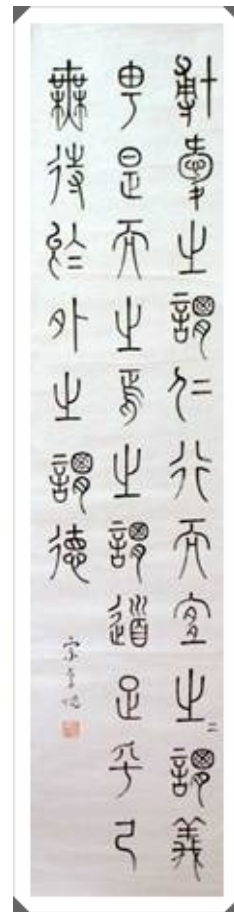 博愛之謂仁行而宜之々謂義
由是而之焉之謂道足乎己
無待於外之謂德
宗孝忱